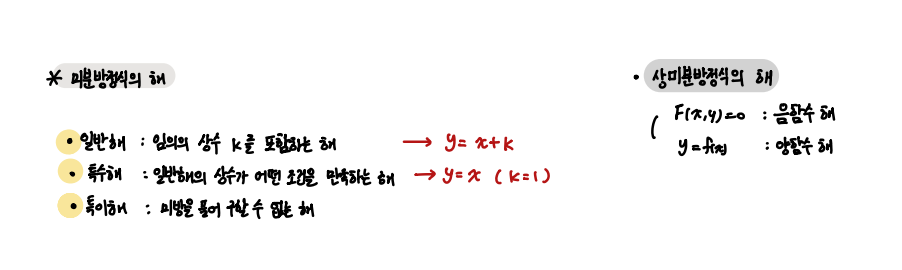 * 미분방정식의 해
• 일반해 : 임의의 상수 k를 포함하는 해 → y = x + k
• 특수해 : 일반해의 상수가 어떤 조건을 만족하는 해 → y = x ( k = 1 )
• 특이해 : 미방을 풀어 구할 수 없는 해
• 상미분방정식의 해
F(x,y)=0 : 음함수 해
y = f(x) : 양함수 해